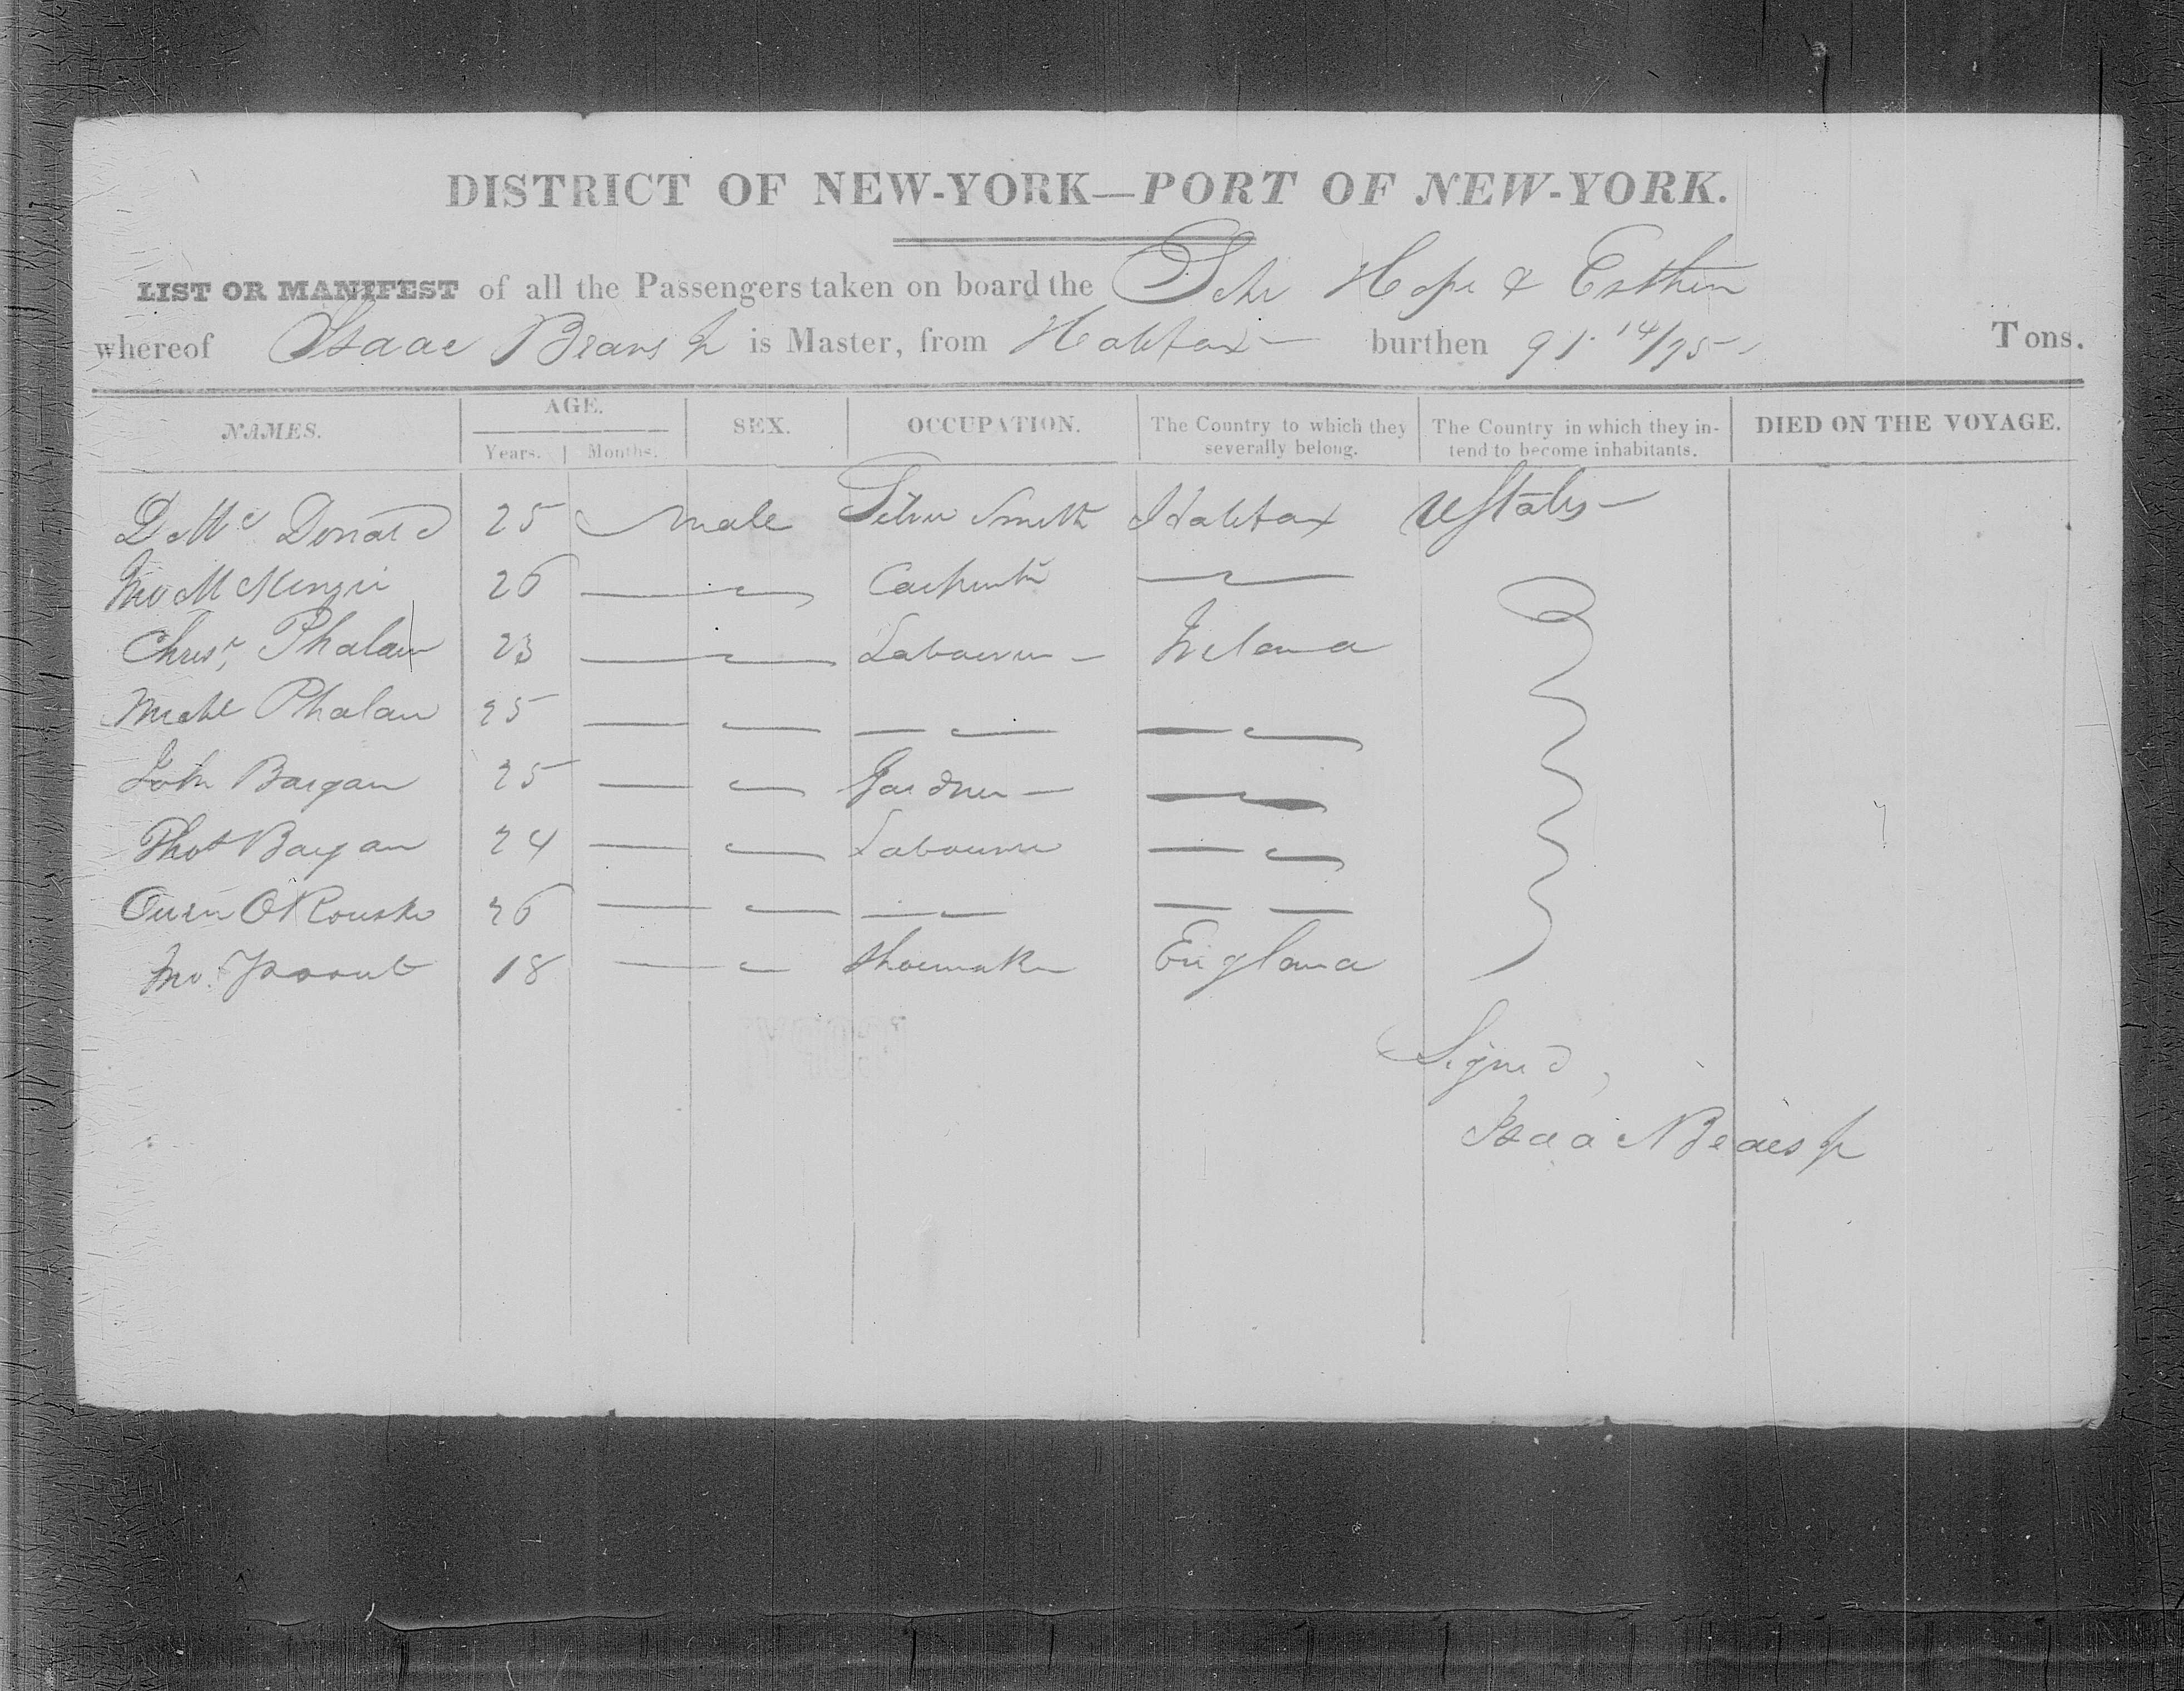 DISTRICT OF NEW-YORK—PORT OF NEW-YORK.
LIST OR MANIFEST of all the Passengers taken on board the Schr Hope & Esther
whereof Isaac Jr is Master, from Halifax — burthen 91 14/95 Tons.
NAMES. AGE. SEX. OCCUPATION. The Country to which they severally belong. The Country in which they in- tend to become inhabitants. DIED ON THE VOYAGE.
Years. Months.
D Mc Donald 25 Male Silver Smith Halifax UStates —
Jno McKenzie 26 Carpenter
Chrisr. Phalan 23 Labourer — Ireland
Michl Phalan 25
John Bargan 25 Gardner —
Thos Bargan 24 Labourer
Owen ORourke 26
Jno. 18 Shoemaker England
Signed,
Isaac Jr